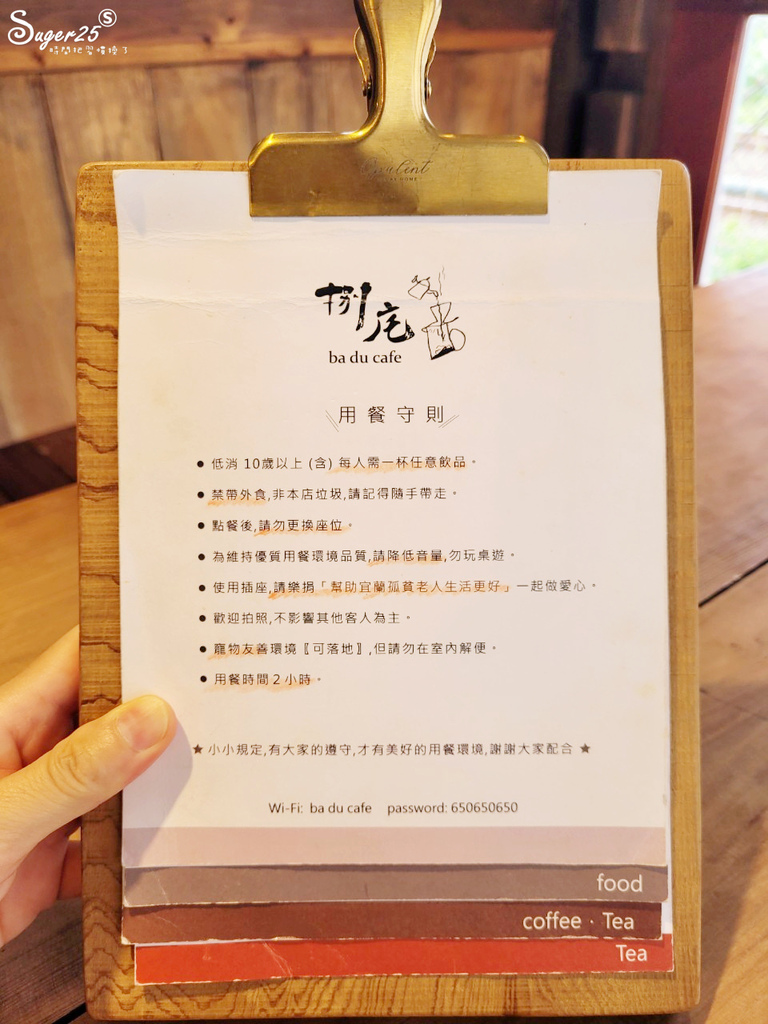 Suger25
時間把習慣換了
捌底
ba du cafe
用餐守則
● 低消 10歲以上 (含) 每人需一杯任意飲品。
● 禁帶外食,非本店垃圾,請記得隨手帶走。
● 點餐後,請勿更換座位。
● 為維持優質用餐環境品質,請降低音量,勿玩桌遊。
● 使用插座,請樂捐「幫助宜蘭孤貧老人生活更好」一起做愛心。
● 歡迎拍照,不影響其他客人為主。
● 寵物友善環境『可落地』,但請勿在室內解便。
● 用餐時間2小時。
★ 小小規定,有大家的遵守,才有美好的用餐環境,謝謝大家配合 ★
Wi-Fi: ba du cafe password: 650650650
food
coffee · Tea
Tea